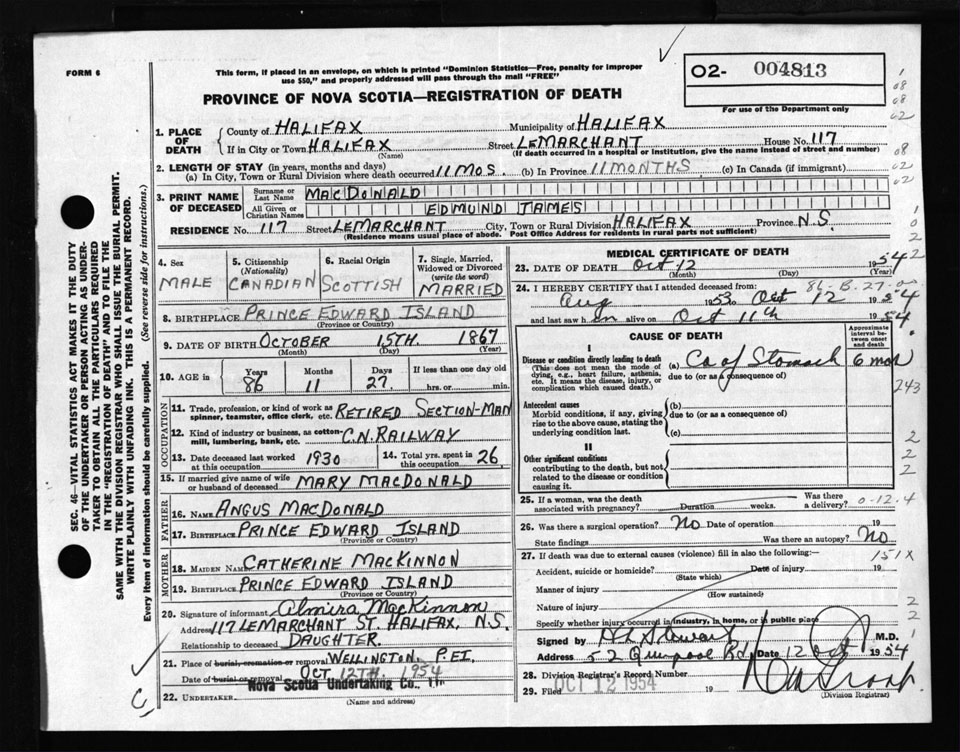 FORM 6
This form, if placed in an envelope, on which is printed "Dominion Statistics—Free, penalty for improper
use $50," and properly addressed will pass through the mail "FREE"
O2- 004813
For use of the Department only
PROVINCE OF NOVA SCOTIA—REGISTRATION OF DEATH
1. PLACE OF DEATH
County of HALIFAX Municipality of HALIFAX
If in City or Town HALIFAX Street LEMARCHANT House No. 117
(Name) (If death occurred in a hospital or institution, give the name instead of street and number)
2. LENGTH OF STAY (in years, months and days)
(a) In City, Town or Rural Division where death occurred 11 MOS. (b) In Province 11 MONTHS (c) In Canada (if immigrant)
3. PRINT NAME OF DECEASED
Surname or Last Name MACDONALD
All Given or Christian Names EDMUND JAMES
RESIDENCE No. 117 Street LEMARCHANT City, Town or Rural Division HALIFAX Province N.S.
(Residence means usual place of abode. Post Office Address for residents in rural parts not sufficient)
4. Sex
MALE
5. Citizenship
(Nationality)
CANADIAN
6. Racial Origin
SCOTTISH
7. Single, Married, Widowed or Divorced
(write the word)
MARRIED
8. BIRTHPLACE PRINCE EDWARD ISLAND
(Province or Country)
9. DATE OF BIRTH OCTOBER 15TH. 1867
(Month) (Day) (Year)
10. AGE in
Years Months Days If less than one day old
86 11 27 hrs. or min.
OCCUPATION
11. Trade, profession, or kind of work as spinner, teamster, office clerk, etc. RETIRED SECTION-MAN
12. Kind of industry or business, as cotton-mill, lumbering, bank, etc. C.N. RAILWAY
13. Date deceased last worked at this occupation 1930
14. Total yrs. spent in this occupation 26
15. If married give name of wife or husband of deceased MARY MACDONALD
FATHER
16. NAME ANGUS MACDONALD
17. BIRTHPLACE PRINCE EDWARD ISLAND
(Province or Country)
MOTHER
18. MAIDEN NAME CATHERINE MACKINNON
19. BIRTHPLACE PRINCE EDWARD ISLAND
(Province or Country)
20. Signature of informant Almira MacKinnon
Address 117 LEMARCHANT ST. HALIFAX, N.S.
Relationship to deceased DAUGHTER.
21. Place of burial, cremation or removal WELLINGTON, P.E.I.
Date of burial or removal OCT 12TH. 1954
22. UNDERTAKER Nova Scotia Undertaking Co.,
(Name and address)
MEDICAL CERTIFICATE OF DEATH
23. DATE OF DEATH Oct 12 1954
(Month) (Day) (Year)
86-B-27-0
24. I HEREBY CERTIFY that I attended deceased from:
Aug 1953 Oct 12 1954
and last saw him alive on Oct 11th 1954
CAUSE OF DEATH
Approximate interval between onset and death
I
Disease or condition directly leading to death
(This does not mean the mode of dying, e.g., heart failure, asthenia, etc. It means the disease, injury, or complication which caused death.)
(a) Ca of Stomach 6 mos
due to (or as a consequence of)
Antecedent causes
Morbid conditions, if any, giving rise to the above cause, stating the underlying condition last.
(b)
due to (or as a consequence of)
(c)
II
Other significant conditions
contributing to the death, but not related to the disease or condition causing it.
25. If a woman, was the death associated with pregnancy? Duration weeks. Was there a delivery?
0-12.4
26. Was there surgical operation? No Date of operation 19
State findings Was there an autopsy? No
27. If death was due to external causes (violence) fill in also the following:—
151X
Accident, suicide or homicide? Date of injury 19
(State which)
Manner of injury
(How sustained)
Nature of injury
Specify whether injury occurred in industry, in home, or in public place
Signed by Stewart M.D.
Address 52 Quinpool Rd. Date 12 Oct 1954
28. Division Registrar's Record Number
29. Filed OCT 12 1954 19
(Division Registrar)
SEC. 46—VITAL STATISTICS ACT MAKES IT THE DUTY
OF THE UNDERTAKER OR PERSON ACTING AS UNDER-
TAKER TO OBTAIN ALL THE PARTICULARS REQUIRED
IN THE "REGISTRATION OF DEATH" AND TO FILE THE
SAME WITH THE DIVISION REGISTRAR WHO SHALL ISSUE THE BURIAL PERMIT.
WRITE PLAINLY WITH UNFADING INK. THIS IS A PERMANENT RECORD.
Every item of information should be carefully supplied. (See reverse side for instructions.)
1
08
08
02
08
02
02
1
0
2
2
243
2
2
2
2
2